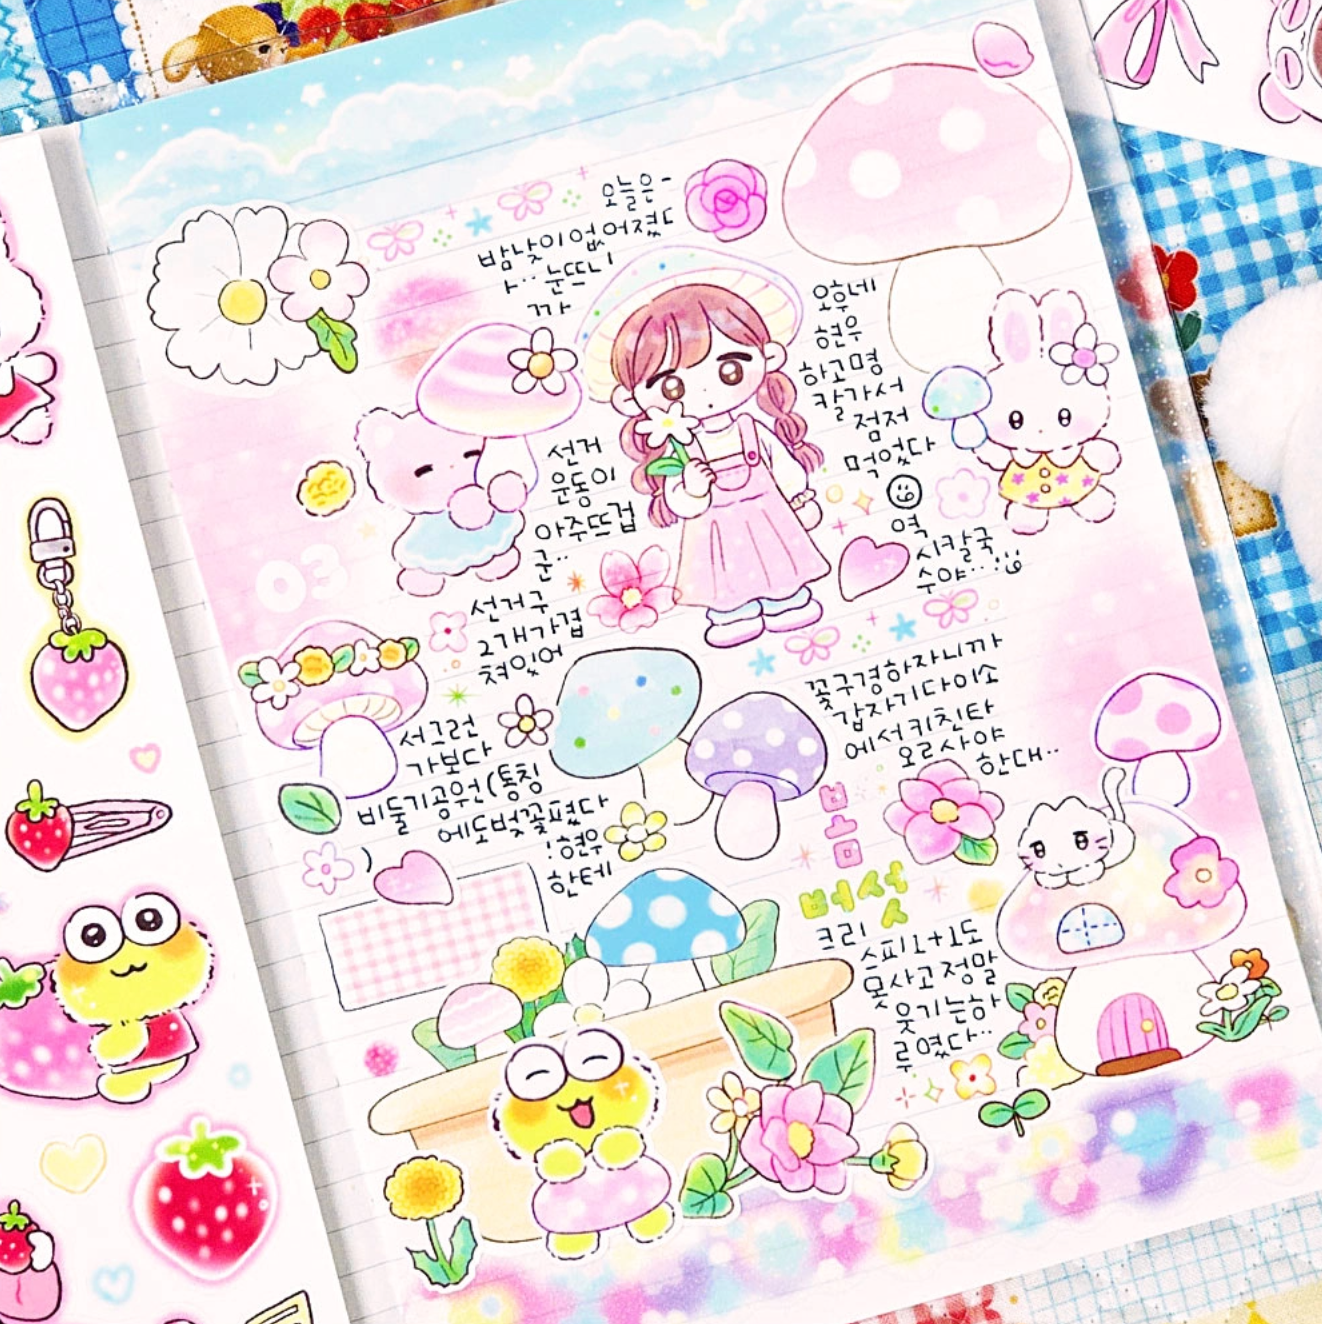 오늘은-
밤낮이 없어졌다
ㅏ.. 눈뜨니
까
오후네
현우
하고명
칼가서
점저
먹었다
역
시칼국
수야..!
선거
운동이
아주뜨겁
군..
선거구
2개가겹
쳐있어
서그런
가보다
비둘기공원(통칭
)
에도벚꽃폈다
!현우
한테
꽃구경하자니까
갑자기다이소
에서키친타
오르사야
한대..
03
봄
버섯
크리
스피1+1도
못사고정말
웃기는하
루였다..